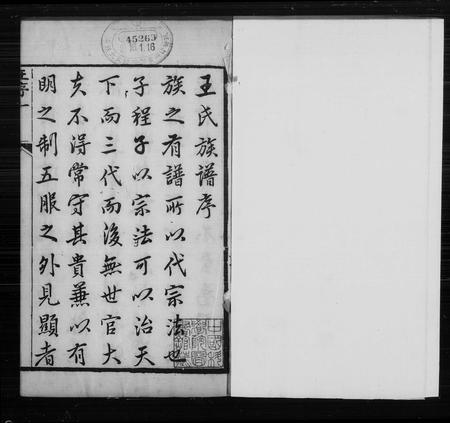 王氏族譜序
族之有譜所以代宗法也
子程子以宗法可以治天
下而三代而後無世官大
夫不得常守其貴兼以有
明之制五服之外見顯者
45265